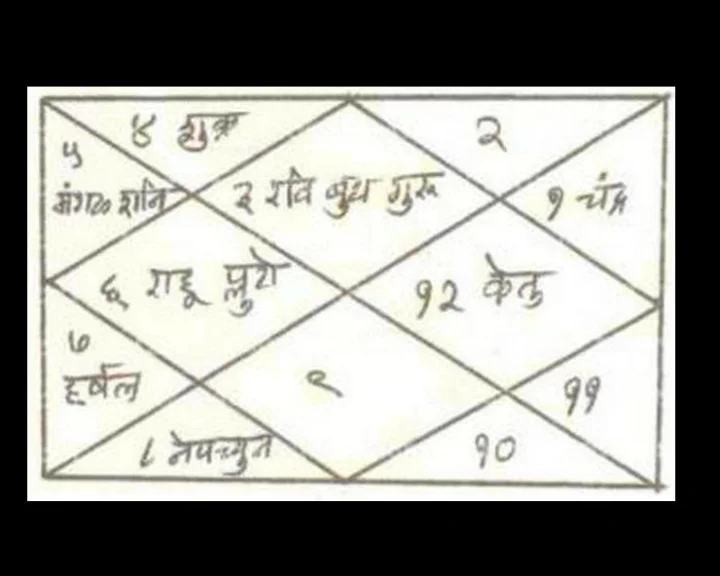 ४ शुक्र
२
५
मंगळ शनि
३ रवि बुध गुरू
१ चंद्र
६ राहू प्लुटो
१२ केतु
७
हर्षल
९
११
८ नेपच्युन
१०